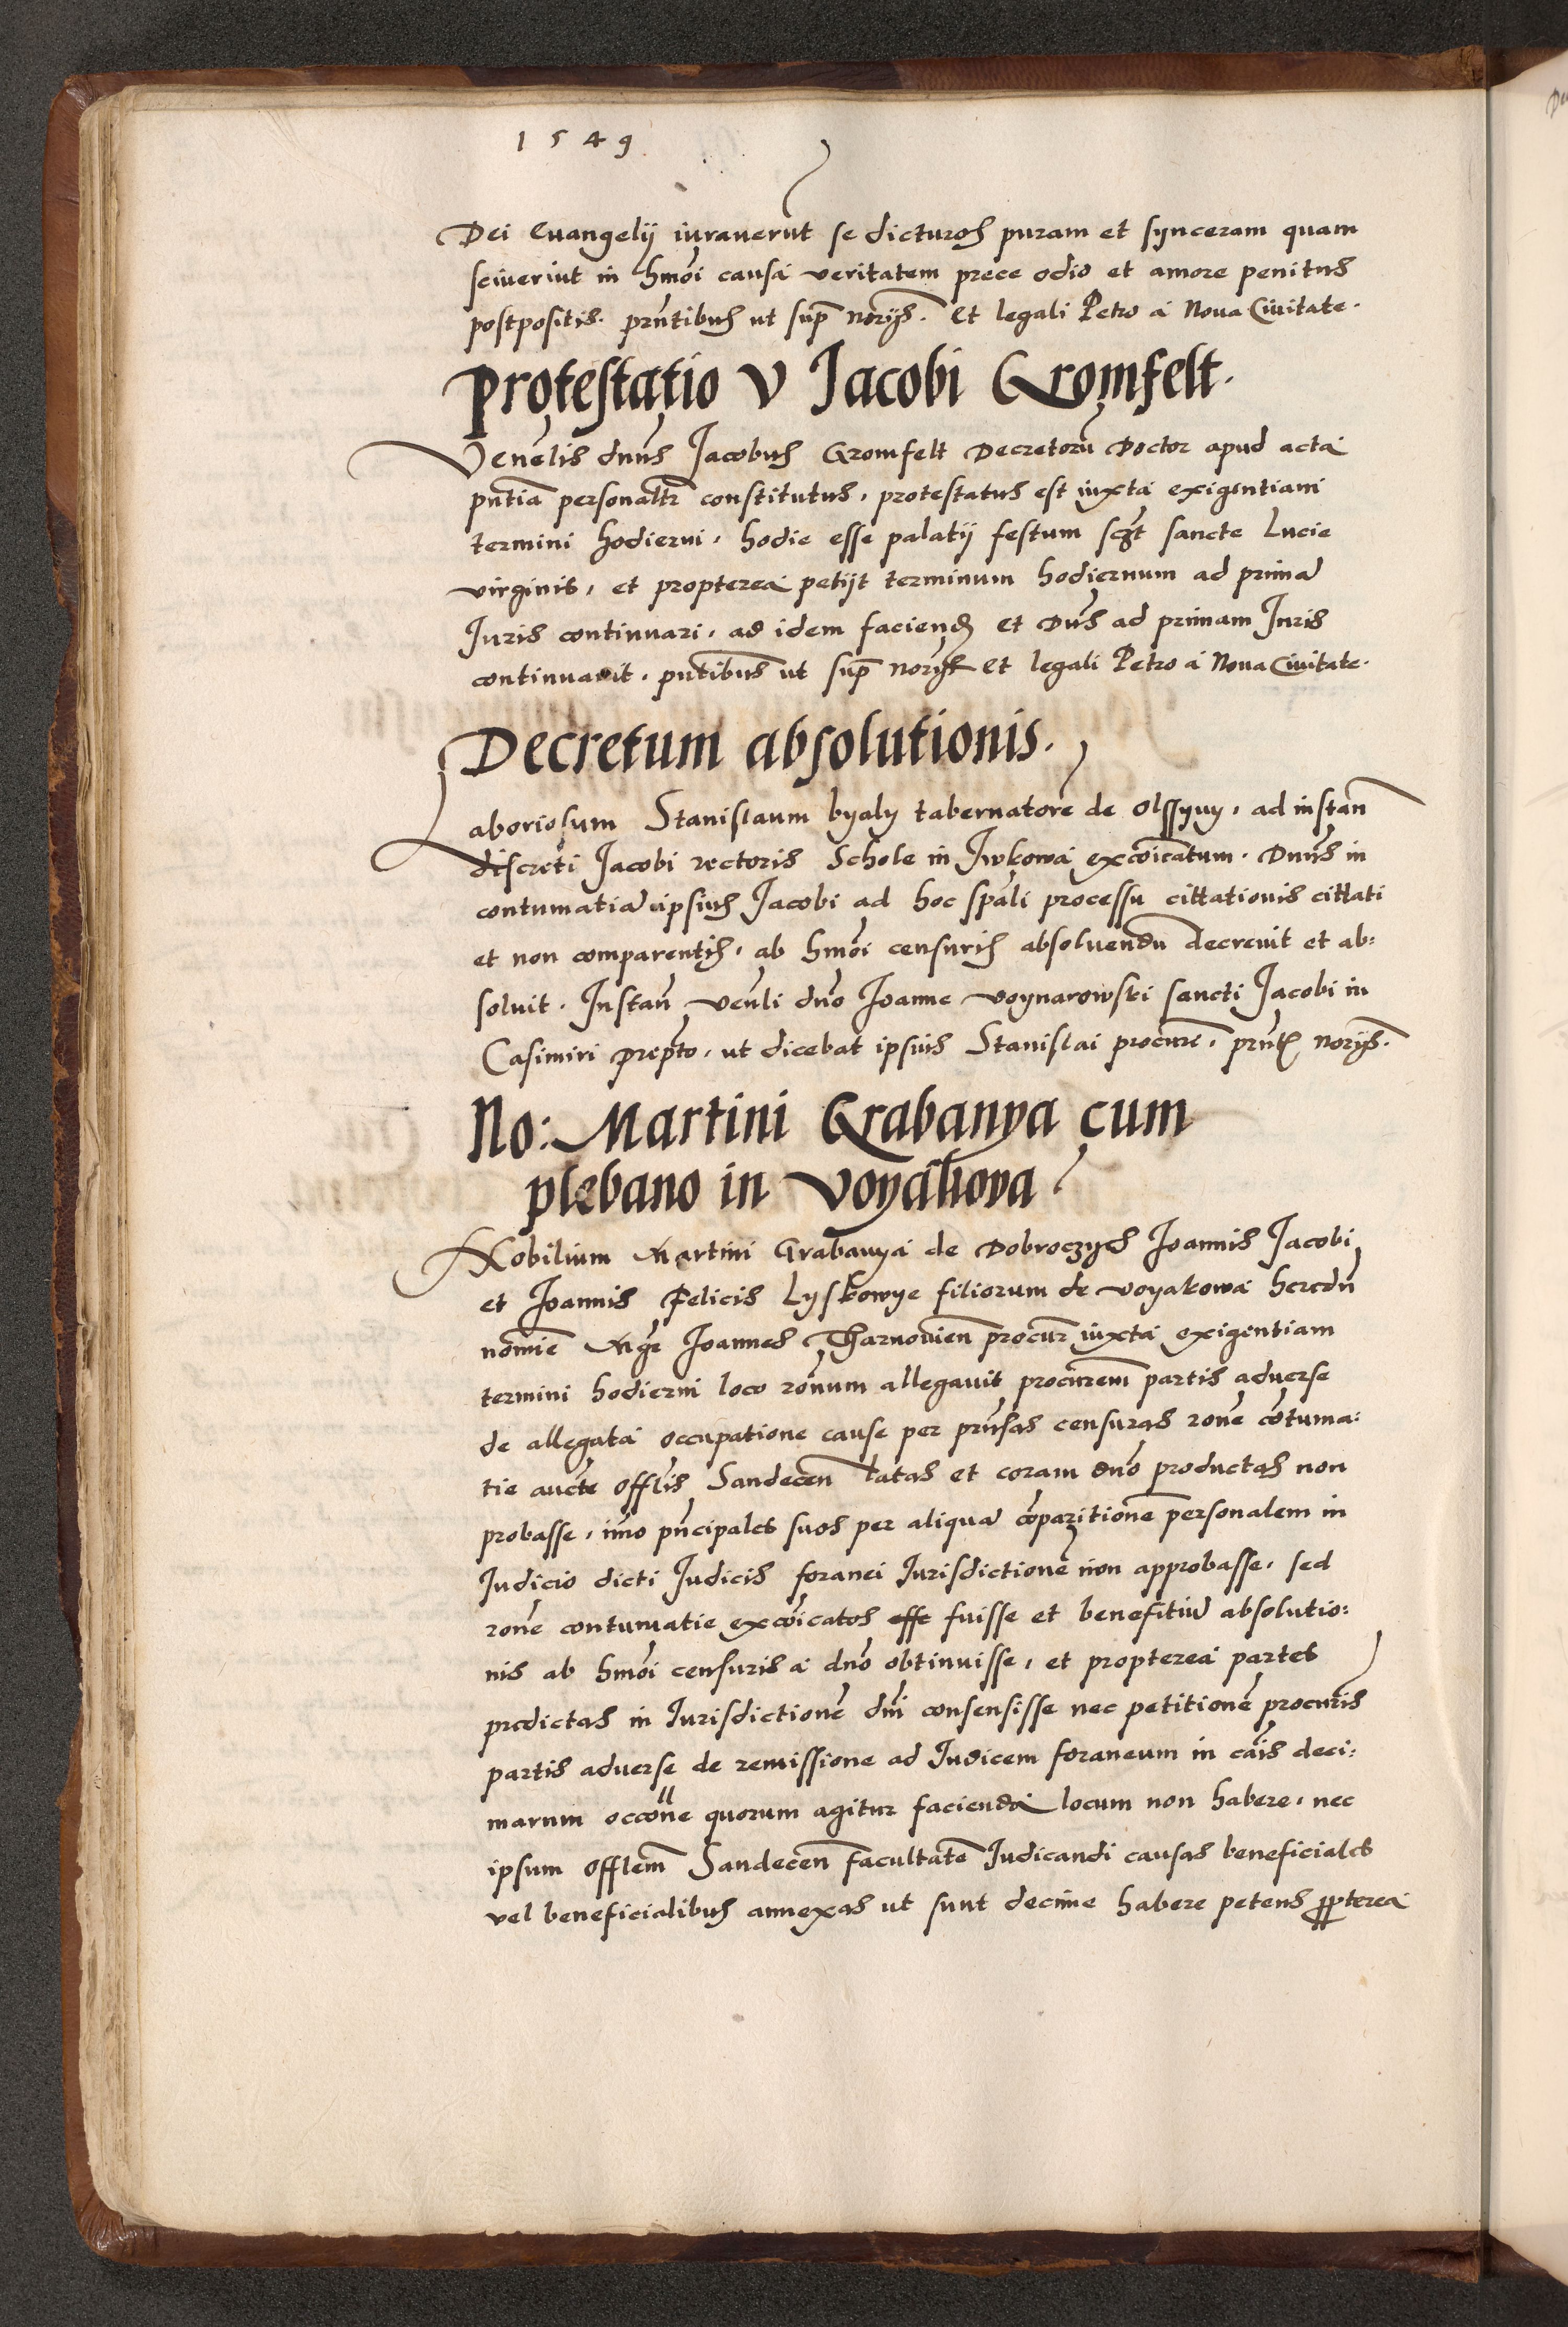 1549
Dei Euangelij iurauerūt se dicturos puram et synceram quam
sciuerint in hmōi causa veritatem prece odio et amore penitus
postpositis. prn̄tibus ut sup̄ norijs. Et legali Petro a Noua Ciuitate.
Protestatio V Jacobi Gromfelt.
Venēlis dnūs Jacobus Gromfelt Decretorū Doctor apud acta
pn̄tia personaltr̄ constitutus, protestatus est iuxta exigentiam
termini hodierni, hodie esse palatij festum sc̄t sancte Lucie
virginis, et propterea petijt terminum hodiernum ad prima
Juris continuari, ad idem faciend et Dn̄s ad primam Juris
continuauit, pn̄tibus ut sup̄ norijs Et legali Petro a Noua Ciuitate.
Decretum absolutionis.
Laboriosum Stanislaum byaly tabernatorē de Olssyny, ad instan̄
discreti Jacobi rectoris Schole in Jwkowa excōicatum. Dnūs in
contumatia ipsius Jacobi ad hoc spāli processu cittationis cittati
et non comparentis, ab hmōi censuris absoluendū decreuit et ab:
soluit. Instan̄ venli dnō Joanne Voynarowski sancti Jacobi in
Casimiri prepto, ut dicebat ipsius Stanislai procure, prn̄t norijs.
No: Martini Grabanya cum
plebano in Voyakova
Nobilium Martini Grabanya de Dobroczyes Joannis Jacobi
et Joannis Felicis Lyskowye filiorum de Voyakowa heredū
nomīe Mgr̄ Joannes Tharnouien̄ procur̄ iuxta exigentiam
termini hodierni loco rōnum allegauit procurem̄ partis aduerse
de allegata occupatione cause per prn̄sas censuras rōne cōtuma:
tie aucte Offlīs Sandecen̄ latas et coram dnō productas non
probasse, imo pn̄cipales suos per aliqua cōparitionē personalem in
Judicio dicti Judicis foranei Jurisdictionē non approbasse, sed
rōne contumatie excōicatos esse fuisse et benefitiū absolutio:
nis ab hmōi censuris a dnō obtinuisse, et propterea partes
predictas in Jurisdictionē dnī consensisse nec petitionē procuris
partis aduerse de remissione ad Judicem foraneum in cāis deci:
marum occōne quorum agitur facienda locum non habere, nec
ipsum Offlem̄ Sandecen̄ facultatē Judicandi causas beneficiales
vel beneficialibus annexas ut sunt decime habere petens propterea